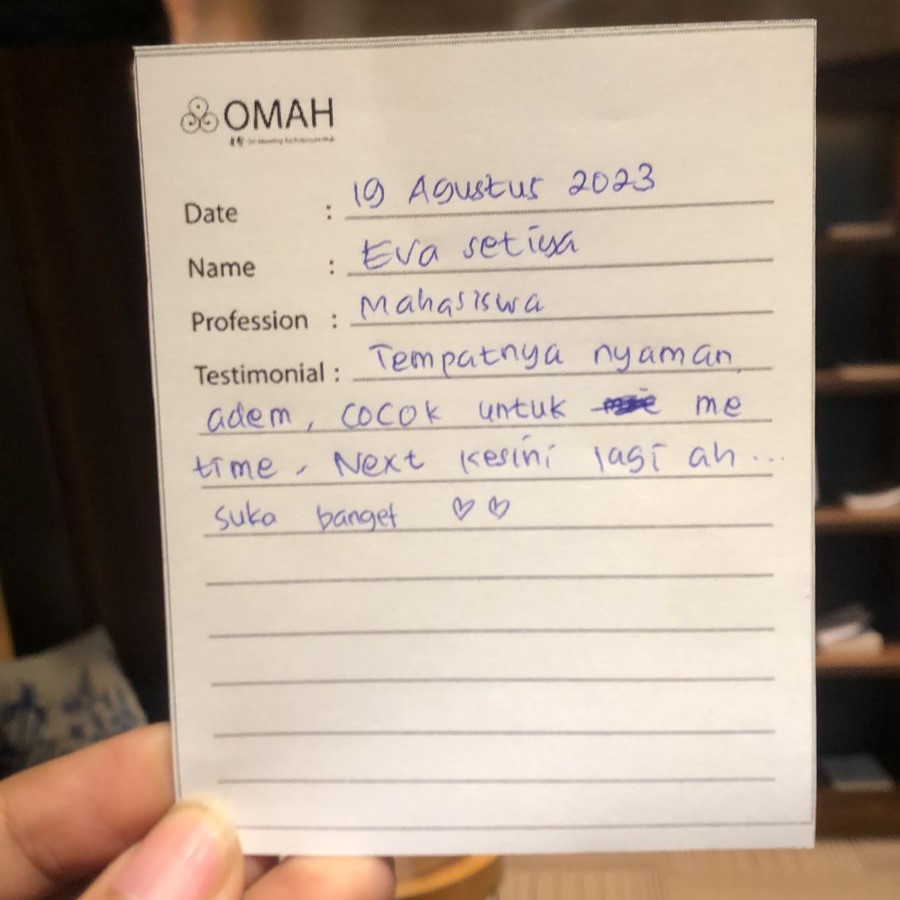 OMAH
Date : 19 Agustus 2023
Name : Eva setiya
Profession : Mahasiswa
Testimonial : Tempatnya nyaman,
adem, cocok untuk me
time, Next kesini lagi ah...
suka banget ♡♡